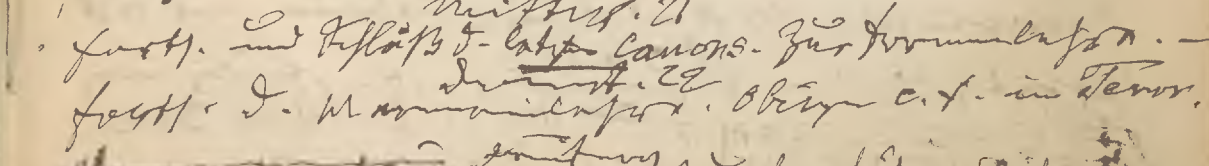 Mittw. 21
Forts. und Schluß d. letzten Canons. Zur Formenlehre. —
Donnerst. 22
Forts. d. Harmonielehre. Übung c. f. im Tenor.